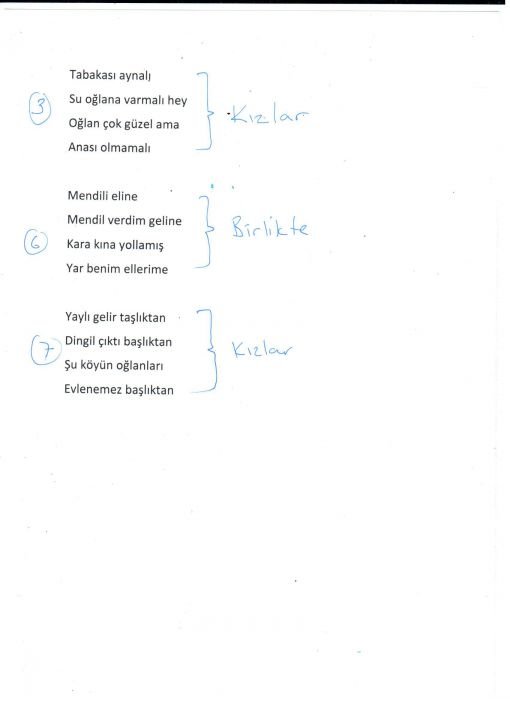 Tabakası aynalı
3 Su oğlana varmalı hey Kızlar
Oğlan çok güzel ama
Anası olmamalı
Mendili eline
Mendil verdim geline Birlikte
6 Kara kına yollamış
Yar benim ellerime
Yaylı gelir taşlıktan
7 Dingil çıktı başlıktan Kızlar
Şu köyün oğlanları
Evlenemez başlıktan